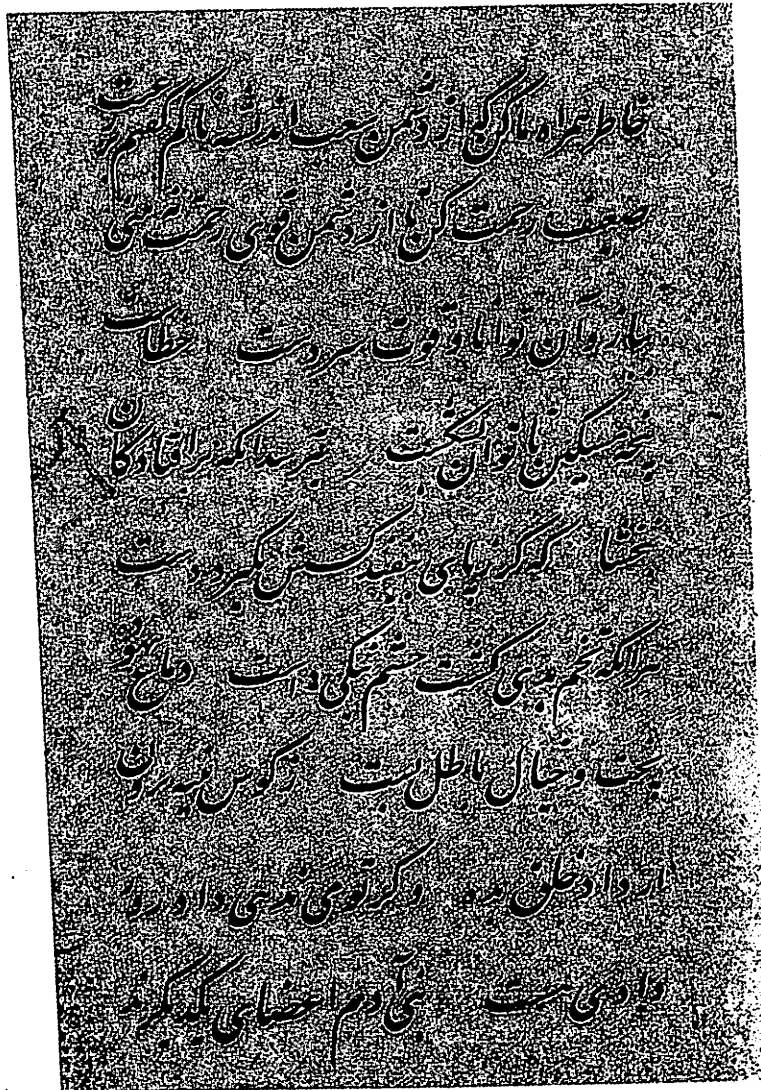 خاطر همراه ما کن که از دشمن صعب اندیشه ناکم گفتم بر رعیت
ضعیف رحمت کن تا از دشمن قوی زحمت نه بینی
ببازوان توانا و قوت سر دست خطاست
پنجه مسکین ناتوان بشکست نترسد آنکه بر افتادگان
نبخشاید که گر ز پای بیفتد کسش نگیرد دست
هر آنکه تخم بدی کشت و چشم نیکی داشت دماغ بیهوده
پخت و خیال باطل بست ز گوش پنبه برون
آر و داد خلق بده و گر تو می ندهی داد روز
دادی هست بنی آدم اعضای یکدیگرند